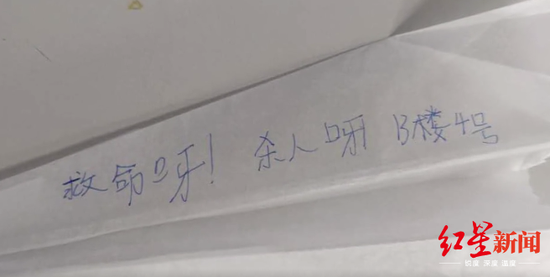 救命呀! 杀人呀 B楼4号
红星新闻